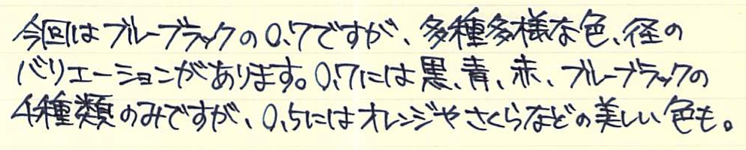 今回はブルーブラックの0.7ですが、多種多様な色、径の
バリエーションがあります。0.7には黒、青、赤、ブルーブラックの
4種類のみですが、0.5にはオレンジやさくらなどの美しい色も。